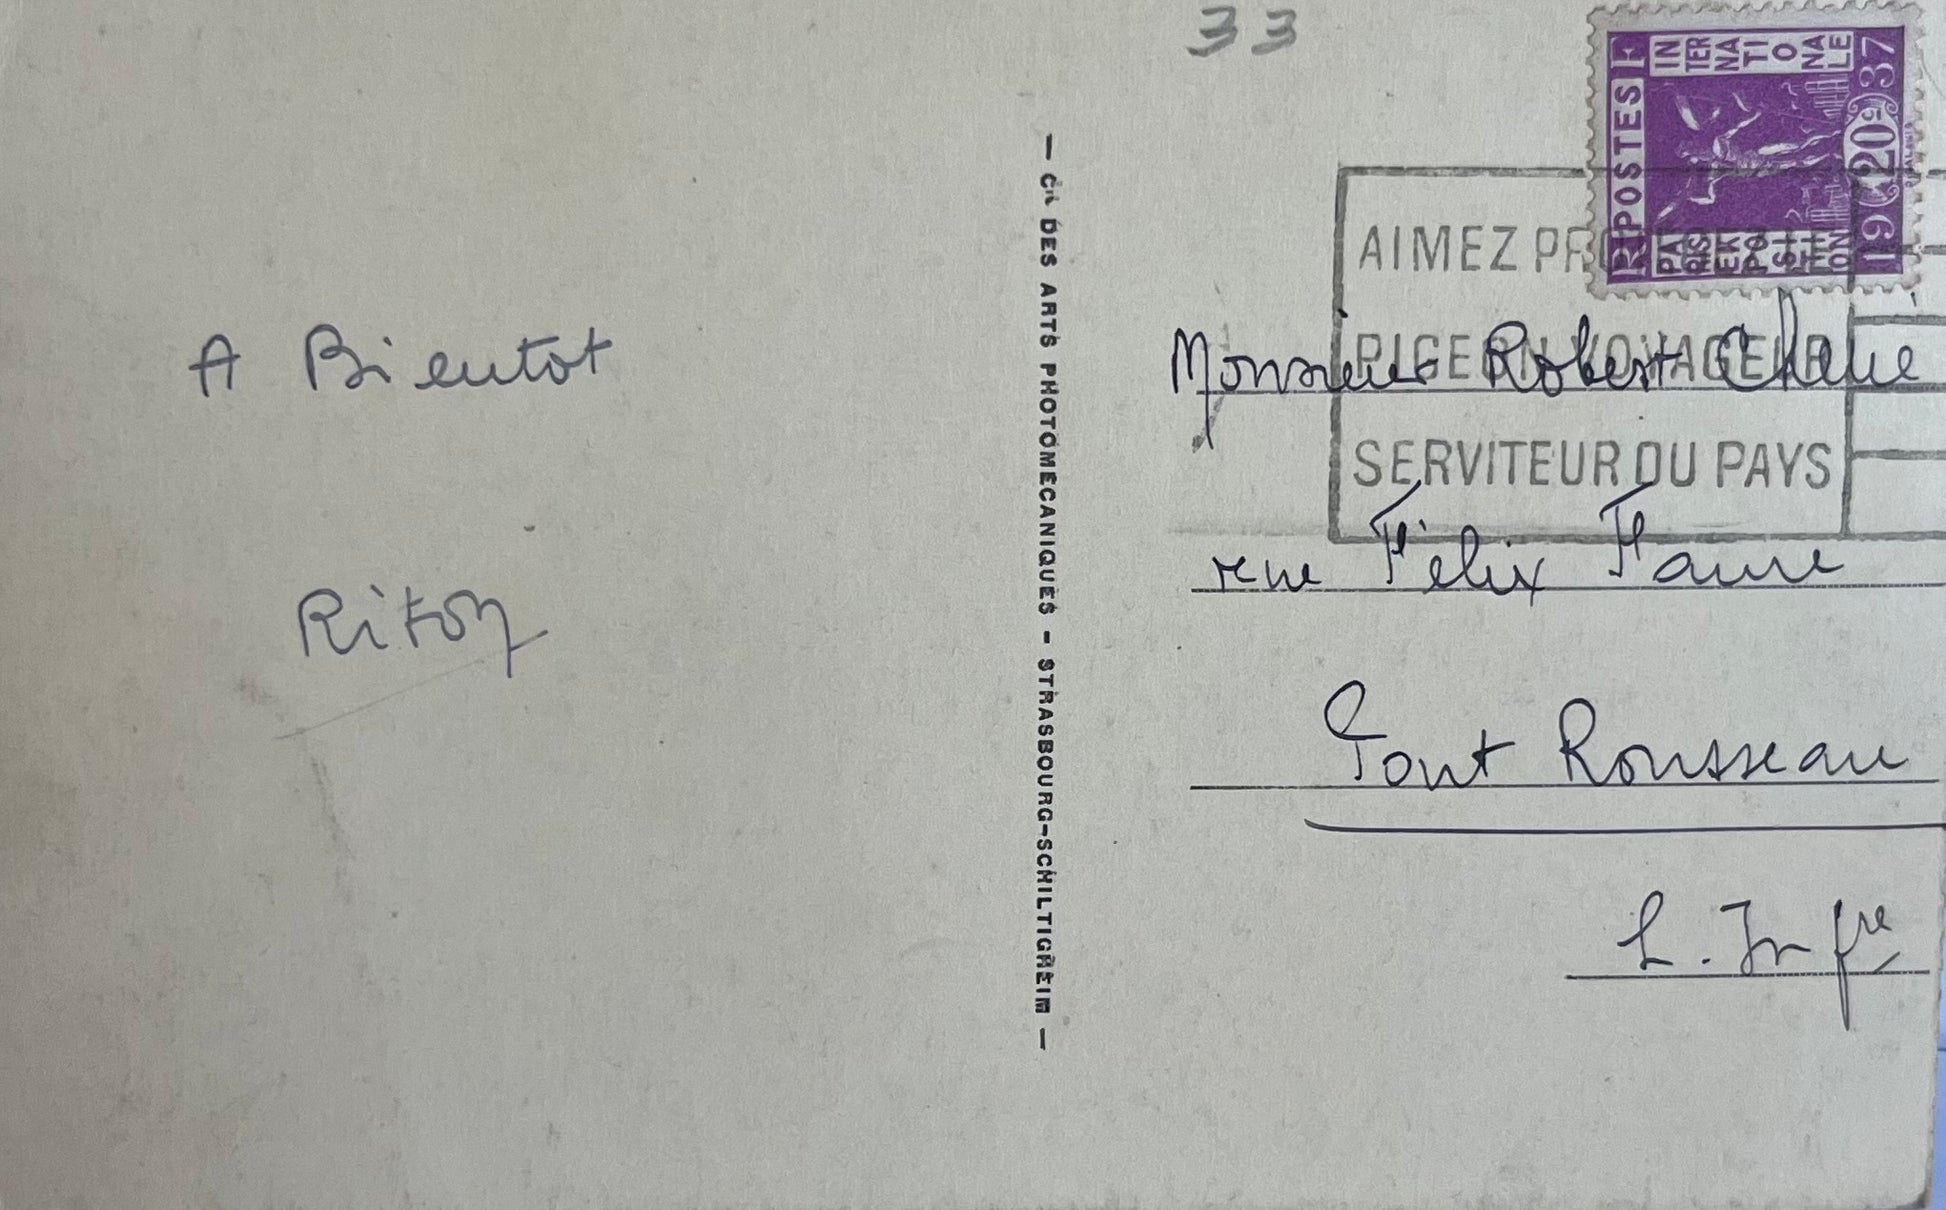 33
R POSTES F
PARIS EXPOSITION INTERNATIONALE
19 20c 37
AIMEZ
PIGEON VOYAGEUR
SERVITEUR DU PAYS
A Bientot
Riton
— Cie DES ARTS PHOTOMECANIQUES - STRASBOURG-SCHILTIGHEIM —
Monsieur Robert
rue Félix Faure
Pont Rousseau
L. Infre